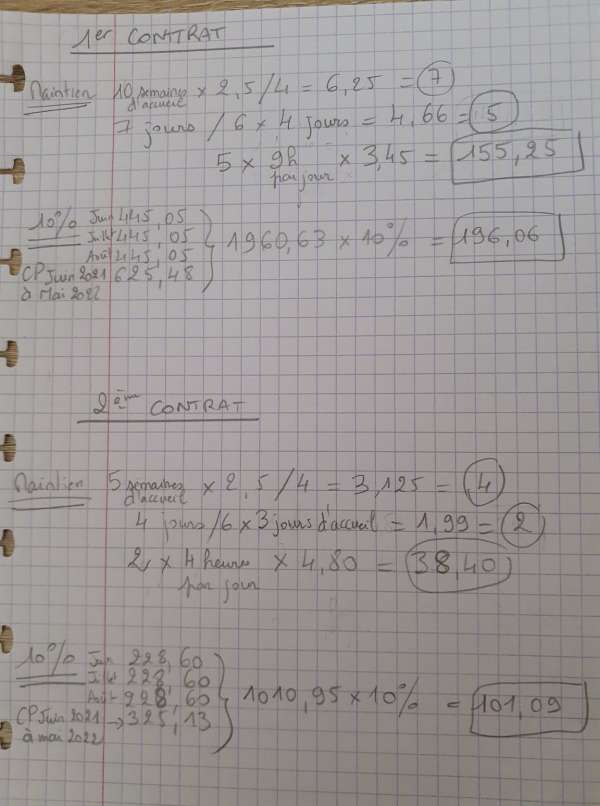 1er CONTRAT
Maintien 10 semaines d'accueil x 2,5/4 = 6,25 = 7
7 jours /6 x 4 jours = 4,66 = 5
5 x 9h par jour x 3,45 = 155,25
10% Juin 445,05
Juillet 445,05
Août 445,05
CP Juin 2021 à Mai 2022 625,48
1960,63 x 10% = 196,06
2ème CONTRAT
Maintien 5 semaines d'accueil x 2,5/4 = 3,125 = 4
4 jours /6 x 3 jours d'accueil = 1,99 = 2
2 x 4 heures par jour x 4,80 = 38,40
10% Juin 228,60
Juillet 228,60
Août 228,60
CP Juin 2021 à mai 2022 → 325,13
1010,95 x 10% = 101,09